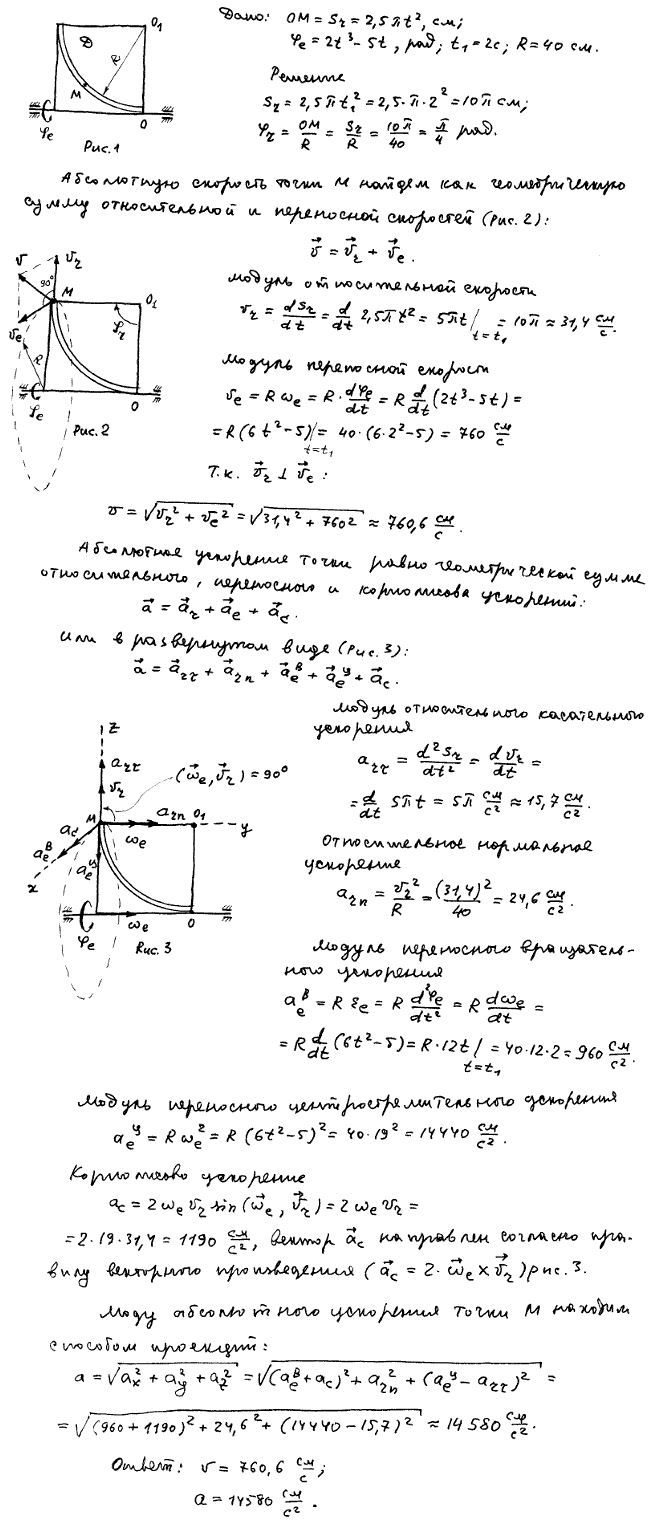 Дано: OM = Sr = 2,5πt², см;
φe = 2t³ − 5t, рад; t₁ = 2c; R = 40 см.
Д O₁
R
M
O
φe
Рис. 1
Решение
Sr = 2,5πt₁² = 2,5·π·2² = 10π см;
φr = OM/R = Sr/R = 10π/40 = π/4 рад.
Абсолютную скорость точки M найдем как геометрическую
сумму относительной и переносной скоростей (рис. 2):
v⃗ = v⃗r + v⃗e.
v vr
90°
M O₁
φr
ve
R
φe O
Рис. 2
Модуль относительной скорости
vr = dSr/dt = d/dt 2,5πt² = 5πt/t=t₁ = 10π ≈ 31,4 см/с.
Модуль переносной скорости
ve = Rωe = R·dφe/dt = R d/dt (2t³ − 5t) =
= R(6t² − 5)/t=t₁ = 40·(6·2² − 5) = 760 см/с
Т.к. v⃗r ⊥ v⃗e:
v = √(vr² + ve²) = √(31,4² + 760²) ≈ 760,6 см/с.
Абсолютное ускорение точки равно геометрической сумме
относительного, переносного и кориолисова ускорений:
a⃗ = a⃗r + a⃗e + a⃗c.
или в развернутом виде (Рис. 3):
a⃗ = a⃗rτ + a⃗rn + a⃗eᴮ + a⃗eʸ + a⃗c.
z
arτ
vr
(ω⃗e, v⃗r) = 90°
M arn O₁ y
ac ωe
aeᴮ aeʸ
x
φe ωe O
Rис. 3
Модуль относительного касательного
ускорения
arτ = d²Sr/dt² = dvr/dt =
= d/dt 5πt = 5π см/с² ≈ 15,7 см/с².
Относительное нормальное
ускорение
arn = vr²/R = (31,4)²/40 = 24,6 см/с².
Модуль переносного вращатель-
ного ускорения
aeᴮ = Rεe = R d²φe/dt² = R dωe/dt =
= R d/dt (6t² − 5) = R·12t/t=t₁ = 40·12·2 = 960 см/с².
Модуль переносного центростремительного ускорения
aeʸ = Rωe² = R(6t² − 5)² = 40·19² = 14440 см/с².
Кориолисово ускорение
ac = 2ωe vr sin(ω⃗e, v⃗r) = 2ωe vr =
= 2·19·31,4 = 1190 см/с², вектор a⃗c направлен согласно пра-
вилу векторного произведения (a⃗c = 2·ω⃗e × v⃗r) рис. 3.
Моду абсолютного ускорения точки M находим
способом проекций:
a = √(ax² + ay² + az²) = √((aeᴮ + ac)² + arn² + (aeʸ − arτ)²) =
= √((960 + 1190)² + 24,6² + (14440 − 15,7)²) ≈ 14580 см/с².
Ответ: v = 760,6 см/с;
a = 14580 см/с².